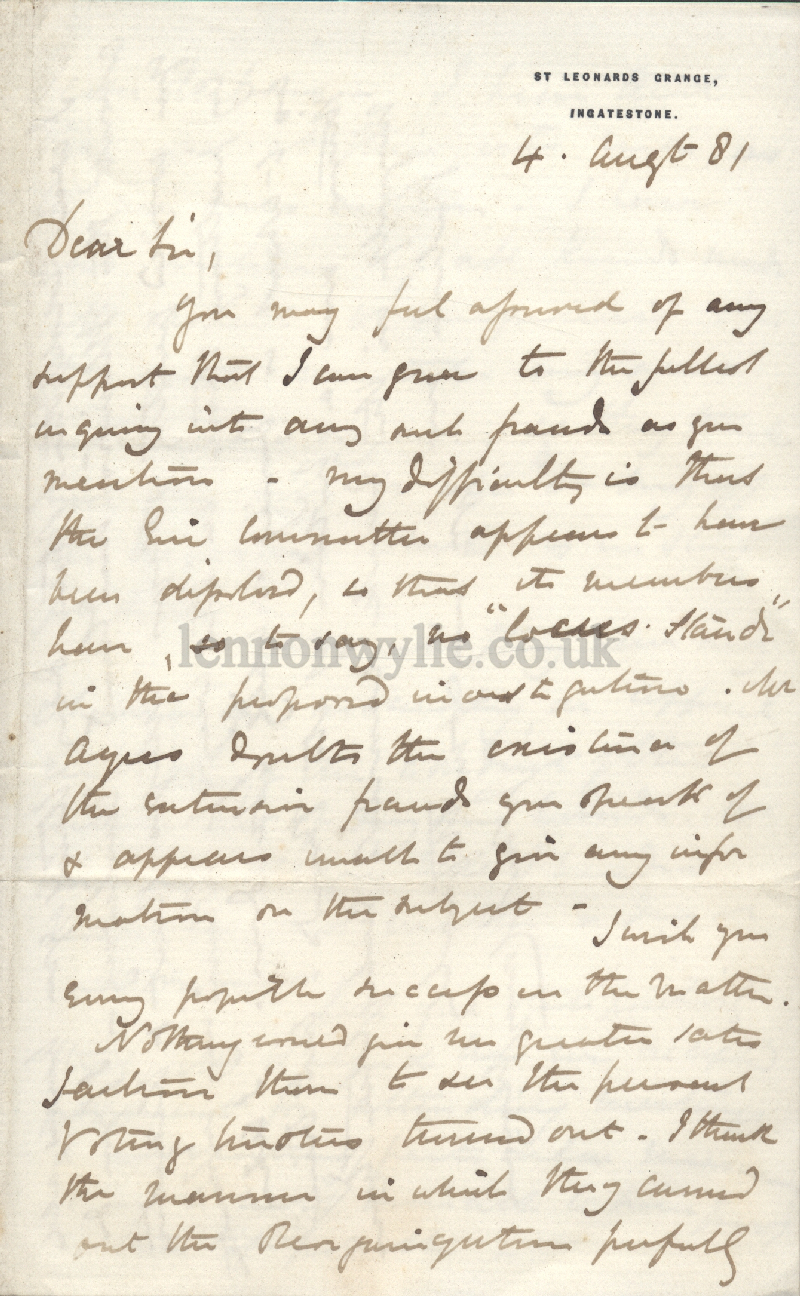 ST LEONARDS GRANGE,
INGATESTONE.
4. Augt 81
Dear Sir,
You may feel assured of any
support that I can give to the fullest
inquiry into any such frauds as you
mention - my difficulty is that
the Erie Committee appears to have
been dissolved, so that its members
have, so to say, no "locus. standi"
in the proposed investigation. Mr
Ayres doubts the existence of
the extensive frauds you speak of
& appears unable to give any infor
mation on the subject -
I wish you
every possible success in the matter.
Nothing would give me greater satis
faction than to see the present
Voting trustees turned out. I think
the manner in which they carried
out the Reorganization perfectly
lennonwylie.co.uk